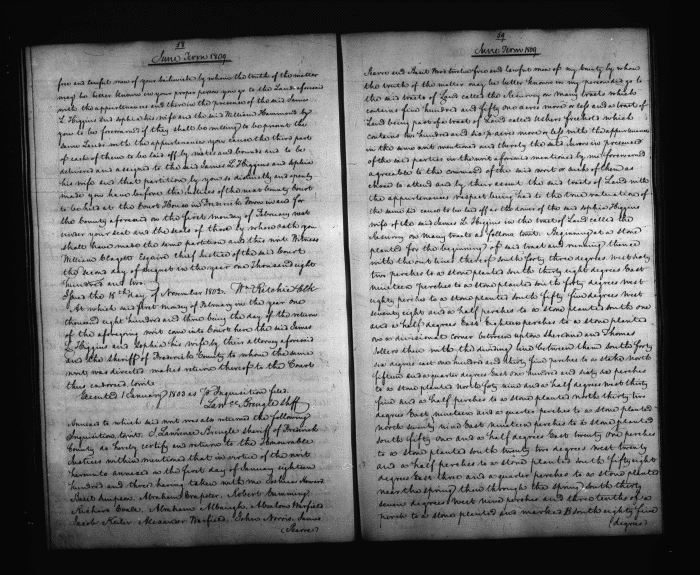 58
June Term 1809
free and lawful men of your bailiwick by whom the truth of the matter
may be better known in your proper person you go to the Land aforesaid
with the appurtenances and there in the presence of the said James
L Higgins and Sophia his wife and the said William Hammond by
you to be forewarned if they shall be willing to be present the
same Lands with the appurtenances you cause the third parts
of each of them to be laid off by metes and bounds and to be
delivered and assigned to the said James L Higgins and Sophia
his wife and that partition by you so distinctly and openly
made you have before the Justices of the next County Court
to be held at the Court House in Frederick Town in and for
the County aforesaid on the first monday of February next
under your seal and the seals of those by whose oath you
shall have made the same partition and this writ Witness
William Claggett Esquire Chief Justice of the said Court
the second day of August in the year one Thousand eight
hundred and two
Issued the 18th day of November 1802. Wm Ritchie Clk
At which said first monday of February in the year one
thousand eight hundred and three being the day of the return
of the aforegoing writ come into Court here the said James
L Higgins and Sophia his wife by their attorney aforesaid
and the Sheriff of Frederick County to whom the same
writ was directed makes return thereof to the Court
thus endorsed towit
Executed 1 January 1803 as Pr Inquisition filed
Lawce Brengle Shff
Annexed to which said writ was also returned the following
Inquisition towit. I Lawrence Brengle Sheriff of Frederick
County do hereby certify and return to the Honourable
Justices within mentioned that in virtue of the writ
hereunto annexed on the first day of January eighteen
hundred and three having taken with me Joshua Howard
David Simpson, Abraham Crapster, Robert Cumming
Richard Coale, Abraham Albaugh, Absalom Warfield
Jacob Keiler Alexander Warfield, John Norris, James
(Pearre)
59
June Term 1809
Pearre and Jacob Mort twelve free and lawful men of my County by whom
the truth of the matter may be better known in my person did go to
the said tracts of Land called the Resurvey on Many tracts which
contains five hundred and fifty one acres more or less and a tract of
Land being part of a tract of Land called Ushers freehold which
contains two hundred and six acres more or less with the appurtenances
in the same writ mentioned and thereby the said Jurors in presence
of the said parties in the writ aforesaid mentioned by me forewarned
agreeable to the command of the said writ or such of them as
chose to attend and by their assent the said tracts of Land with
the appurtenances respect being had to the true valuation of
the same did cause to be laid off as the dower of the said Sophia Higgins
wife of the said James L Higgins in the tract of Land called the
Resurvey on Many tracts as follows towit. Beginning at a stone
planted for the beginning of said tract and running thence
with the out lines thereof south forty three degrees west sixty
two perches to a stone planted south thirty eight degrees East
nineteen perches to a stone planted south forty degrees west
eighty perches to a stone planted south fifty five degrees west
seventy eight and a half perches to a stone planted south one
and a half degrees East Eighteen perches to a stone planted
on a divisional corner between Upton Sheredine and Thomas
Sollers then with the dividing line between them south forty
six degrees east one hundred and thirty five perches to a stake north
fifteen and a quarter degrees East one hundred and sixty six perches
to a stone planted north forty nine and a half degrees west thirty
five and a half perches to a stone planted north thirty two
degrees East nineteen and a quarter perches to a stone planted
north seventy nine East nineteen perches to a stone planted
south fifty one and a half degrees East twenty one perches
to a stone planted south twenty two degrees west twenty
and a half perches to a stone planted south fifty eight
degrees East three and a quarter perches to a stone planted
near the spring then through the spring south thirty
seven degrees west nine perches and three tenths of a
perch to a stone planted and marked B south eighty five
(degrees)